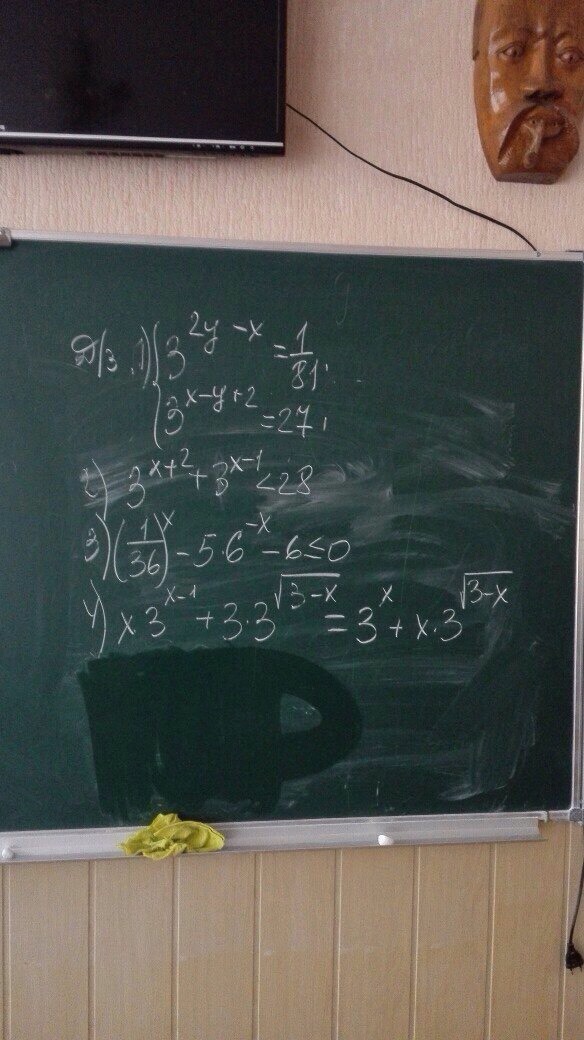 Д/з 1) { 3^{2y-x} = 1/81;
{ 3^{x-y+2} = 27;
2) 3^{x+2} + 3^{x-1} < 28
3) (1/36)^x - 5·6^{-x} - 6 ≤ 0
4) x·3^{x-1} + 3·3^{√(3-x)} = 3^x + x·3^{√(3-x)}